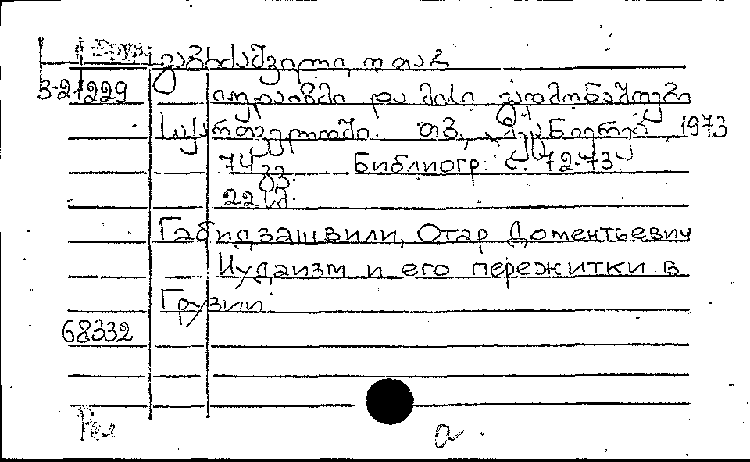 გაბიძაშვილი, ოთარ
3-21229
იუდაიზმი და მისი გადმონაშთები
საქართველოში. თბ., "მეცნიერება", 1973
74 გვ. Библиогр: с. 72-73
22 სმ.
Габидзашвили, Отар Доментьевич
Иудаизм и его пережитки в
Грузии.
68332
Рел а